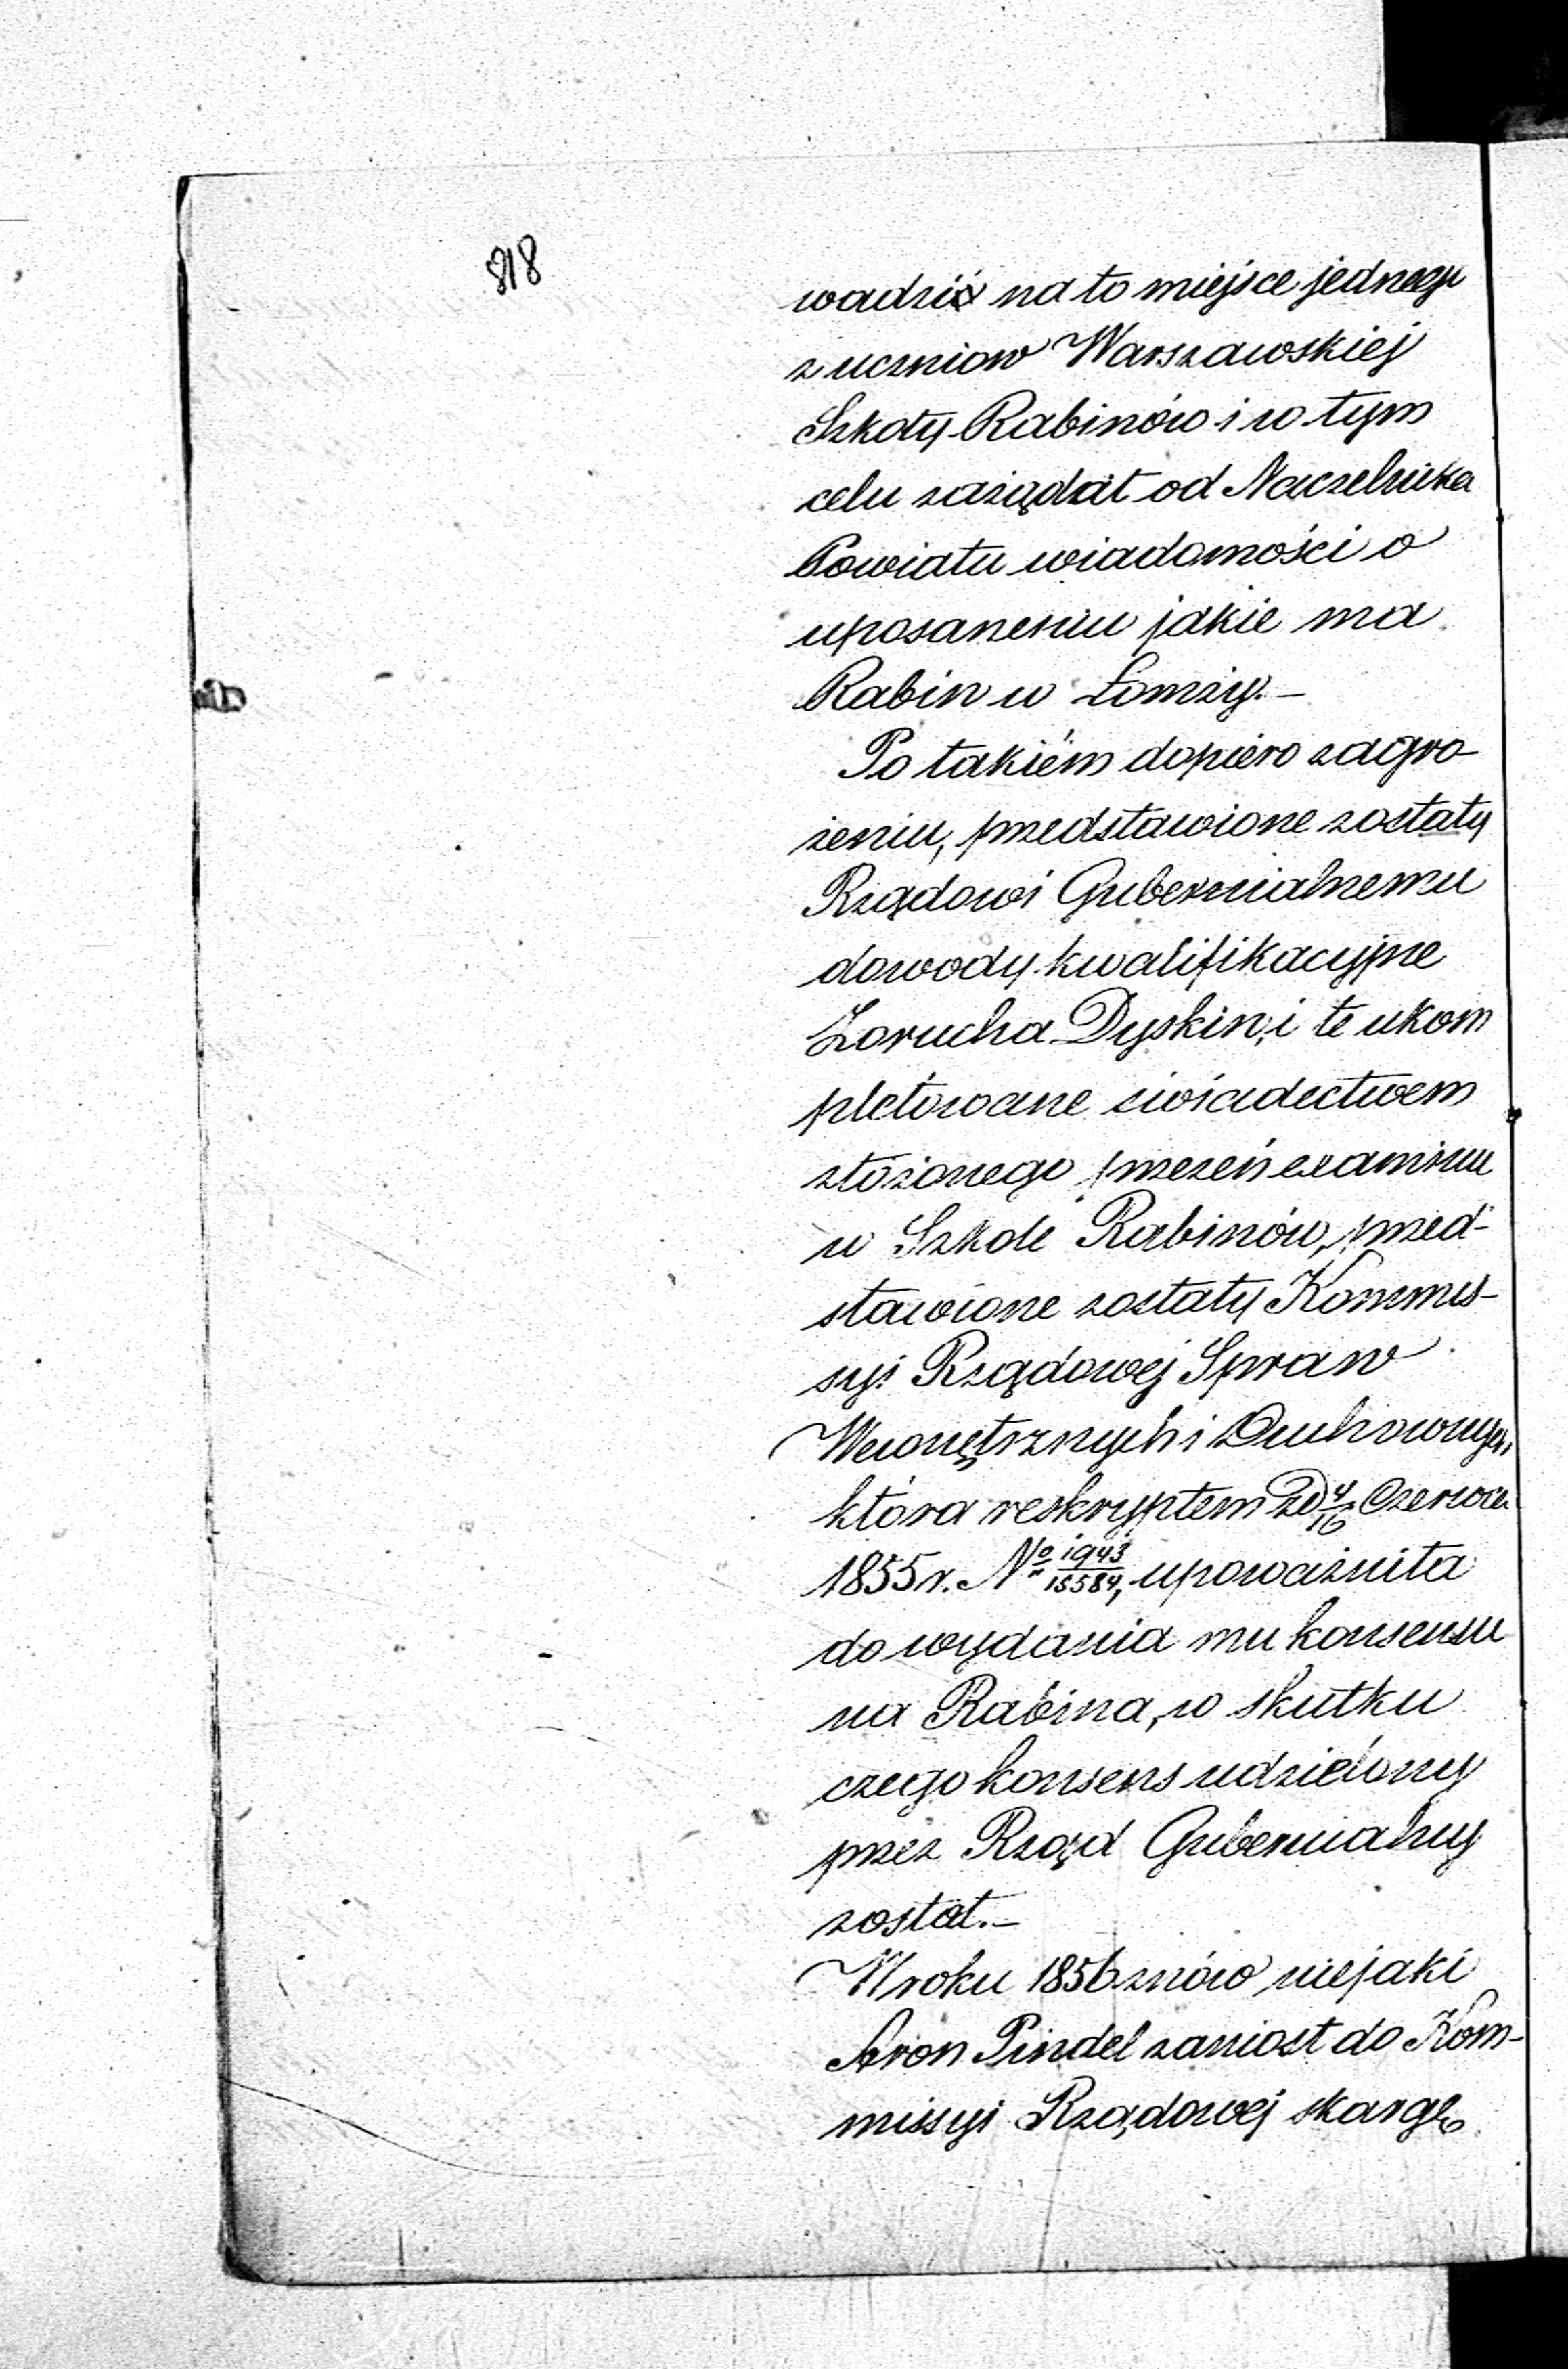 818
wadzić na to miejsce jednego
z uczniow Warszawskiej
Szkoły Rabinów i w tym
celu zażądał od Naczelnika
Powiatu wiadomości o
uposażeniu jakie ma
Rabin w Łomży.—
Po takiém dopiero zagro-
żeniu, przedstawione zostały
Rządowi Gubernialnemu
dowody kwalifikacyjne
Zorucha Dyskin, i te ukom
pletowane świadectwem
złożonego przezeń examinu
w Szkole Rabinów, przed-
stawione zostały Kommis-
syi Rządowej Spraw
Wewnętrznych i Duchownych,
która reskryptem z d 4/16 Czerwca
1855 r. № 1943/15584, upoważniła
do wydania mu konsensu
na Rabina, w skutku
czego konsens udzielony
przez Rząd Gubernialny
został.—
W roku 1856 znów niejaki
Aron Pindel zaniosł do Kom-
missyi Rządowej skargę